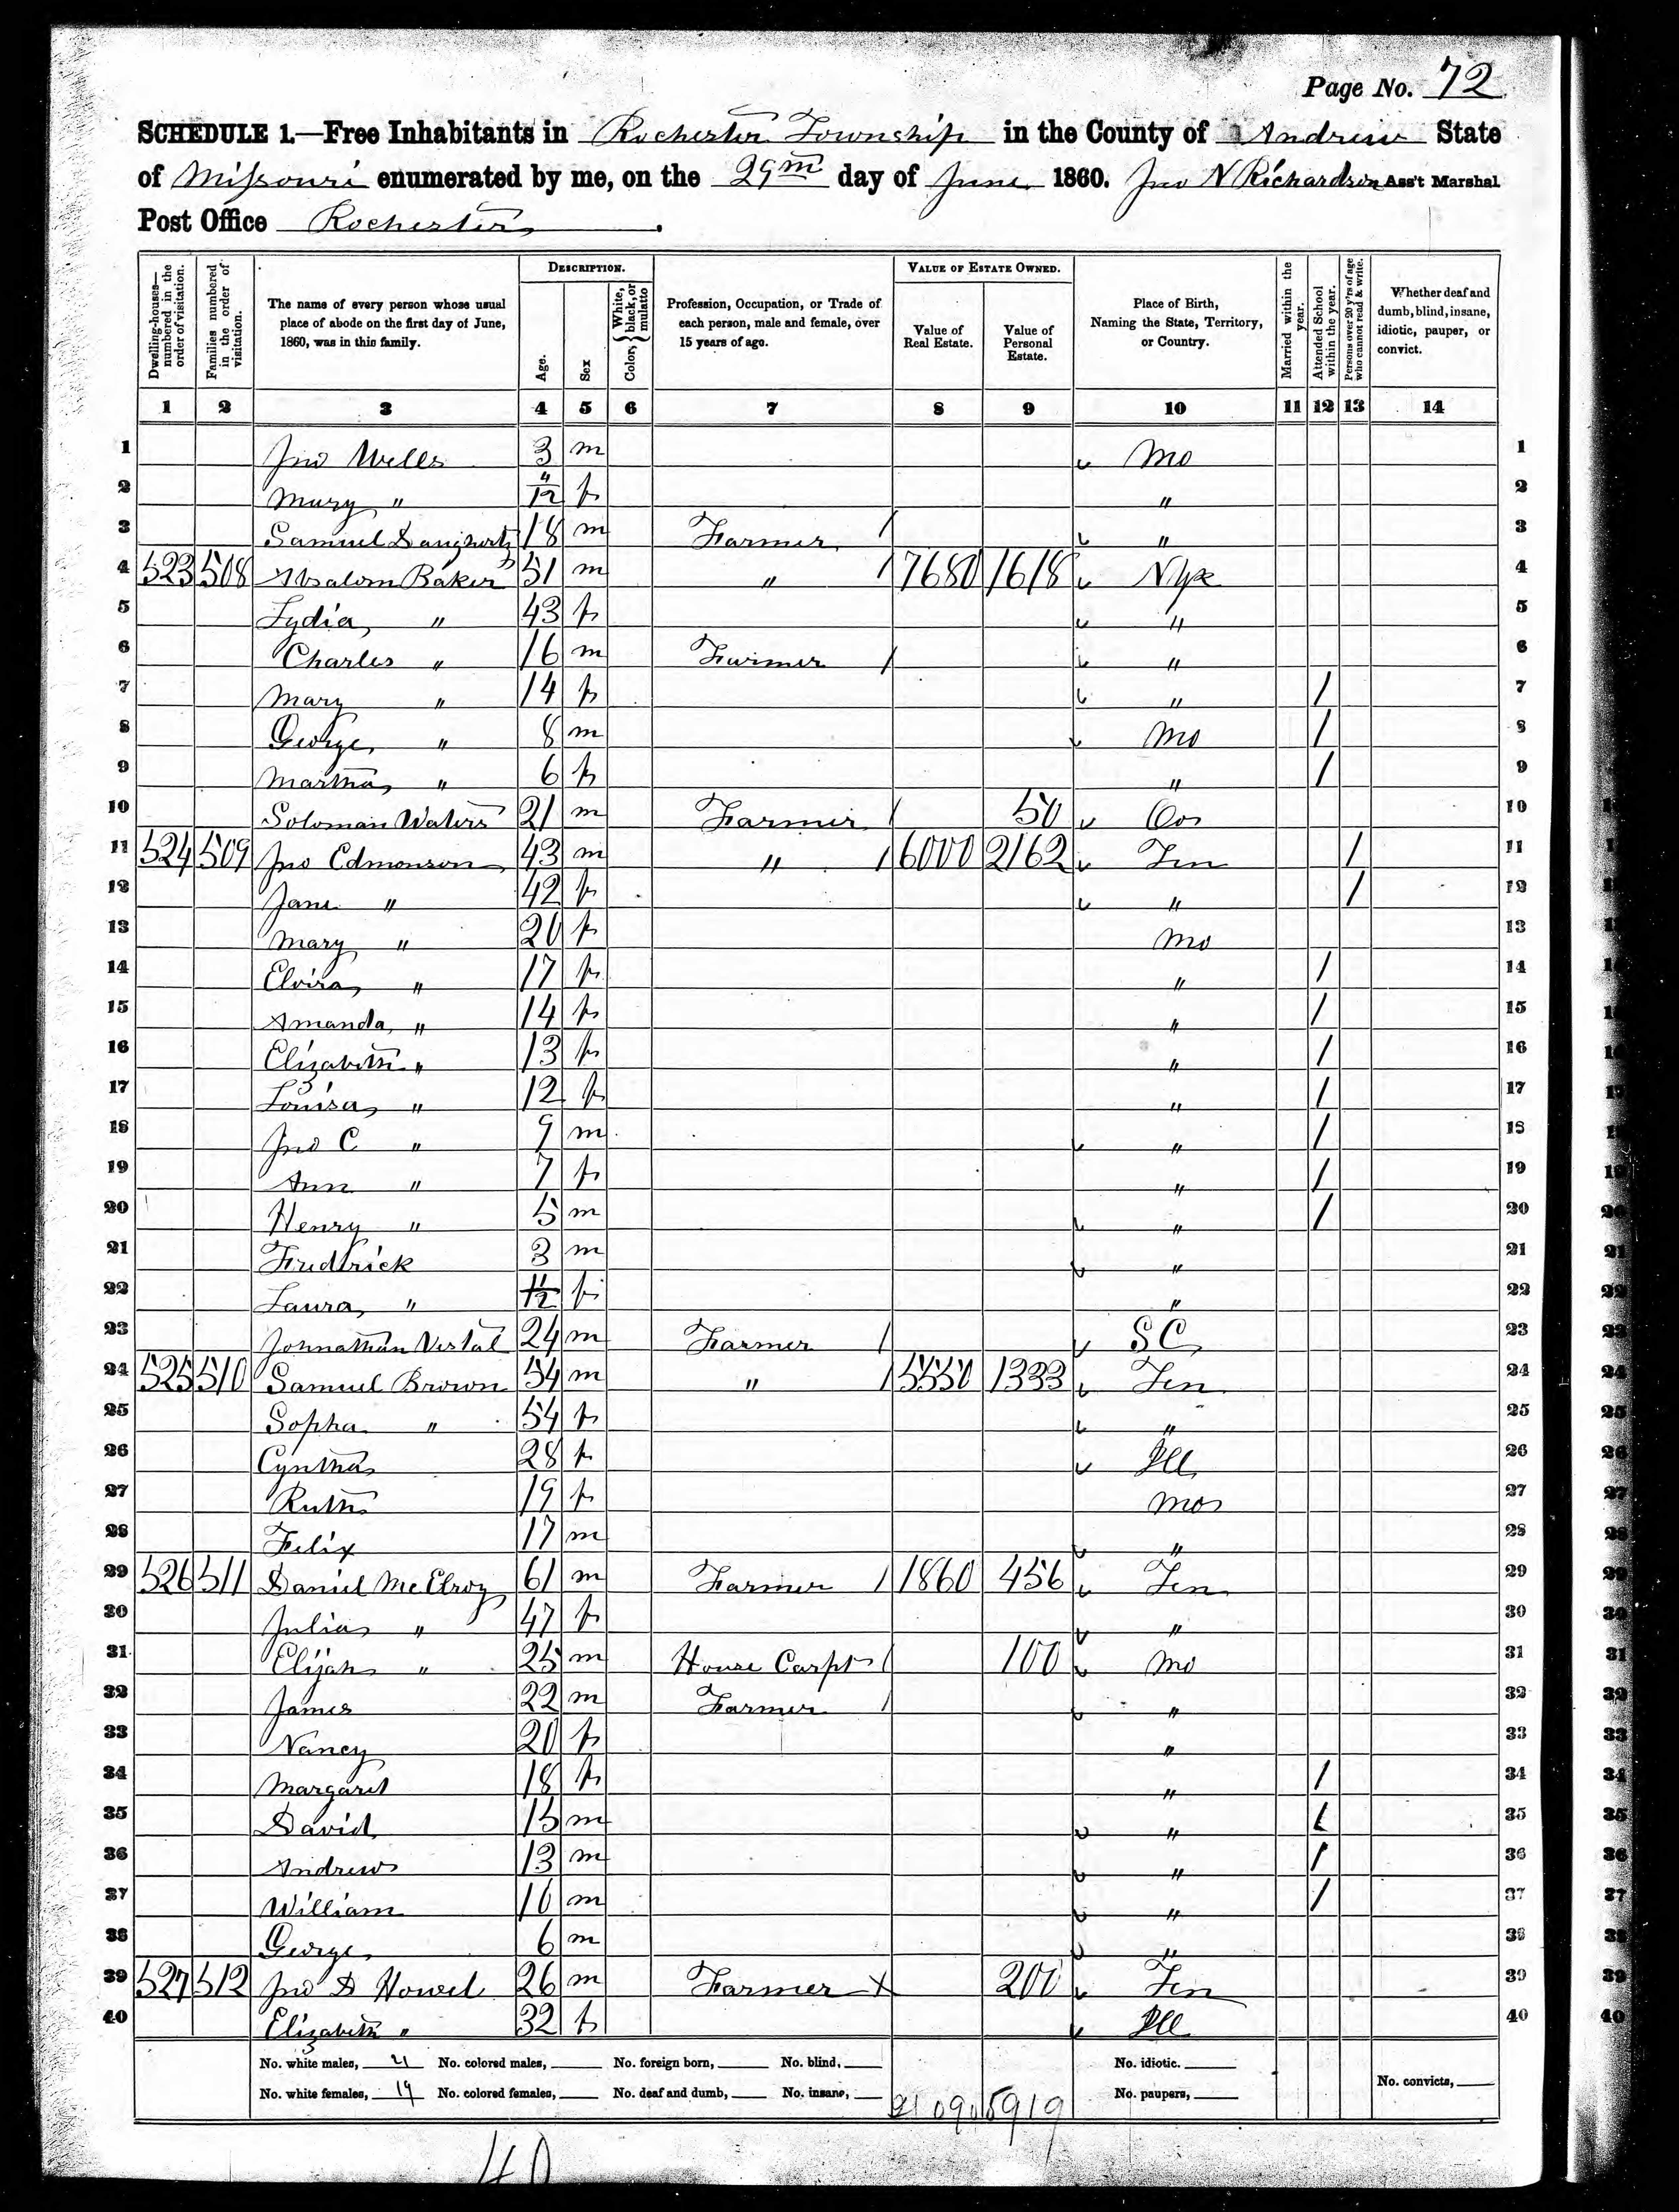 Page No. 72
SCHEDULE 1.—Free Inhabitants in Rochester Township in the County of Andrew State
of Missouri enumerated by me, on the 29th day of June 1860. Jno N Richardson Ass't Marshal
Post Office Rochester.
Dwelling-houses—numbered in the order of visitation.
Families numbered in the order of visitation.
The name of every person whose usual place of abode on the first day of June, 1860, was in this family.
DESCRIPTION.
Age.
Sex
Color, { White, black, or mulatto
Profession, Occupation, or Trade of each person, male and female, over 15 years of age.
VALUE OF ESTATE OWNED.
Value of Real Estate.
Value of Personal Estate.
Place of Birth, Naming the State, Territory, or Country.
Married within the year.
Attended School within the year.
Persons over 20 y'rs of age who cannot read & write.
Whether deaf and dumb, blind, insane, idiotic, pauper, or convict.
1 2 3 4 5 6 7 8 9 10 11 12 13 14
1 Jno Wells 3 m Mo 1
2 Mary " 4/12 f " 2
3 Samuel Daugherty 18 m Farmer / " 3
4 523 508 Absalom Baker 51 m " / 7680 1618 4
5 Lydia, " 43 f " 5
6 Charles " 16 m Farmer / " 6
7 Mary " 14 f " / 7
8 George, " 8 m Mo / 8
9 Martha, " 6 f " / 9
10 Soloman Waters 21 m Farmer / 50 10
11 524 509 Jno Edmonson 43 m " / 6000 2162 Ten / 11
12 Jane " 42 f " / 12
13 Mary " 20 f Mo 13
14 Elvira, " 17 f " / 14
15 Amanda, " 14 f " / 15
16 Elizabeth " 13 f " / 16
17 Louisa, " 12 f " / 17
18 Jno C " 9 m " / 18
19 Ann " 7 f " / 19
20 Henry " 5 m " / 20
21 Fredrick 3 m " 21
22 Laura, " 11/12 f " 22
23 Johnathan Vestal 24 m Farmer / S C 23
24 525 510 Samuel Brown 54 m " / 5550 1333 Ten 24
25 Sopha " 54 f " 25
26 Cyntha 28 f Ill 26
27 Ruth 19 f Mo 27
28 Felix 17 m " 28
29 526 511 Daniel McElroy 61 m Farmer / 1860 456 Ten 29
30 Julia " 47 f " 30
31 Elijah " 25 m House Carpt / 100 Mo 31
32 James 22 m Farmer / " 32
33 Nancy 20 f " 33
34 Margaret 18 f " / 34
35 David 15 m " / 35
36 Andrew 13 m " / 36
37 William 10 m " / 37
38 George, 6 m " 38
39 527 512 Jno D Howel 26 m Farmer X 200 Ten 39
40 Elizabeth " 32 f Ill 40
No. white males, 21 No. colored males, No. foreign born, No. blind, No. idiotic.
No. white females, 19 No. colored females, No. deaf and dumb, No. insane, 21090 5919 No. paupers, No. convicts,
40